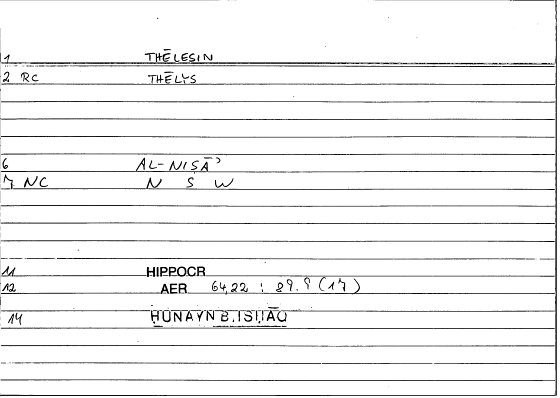 1 THĒLESIN
2 RC THĒLYS
6 AL-NISĀʾ
7 NC N S W
11 HIPPOCR
12 AER 64,22 : 89.9 (17)
14 ḤUNAYN B.ISḤĀQ